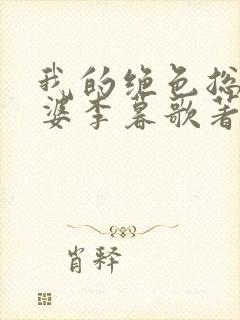 我的绝色总
婆李暮歌著
肖释